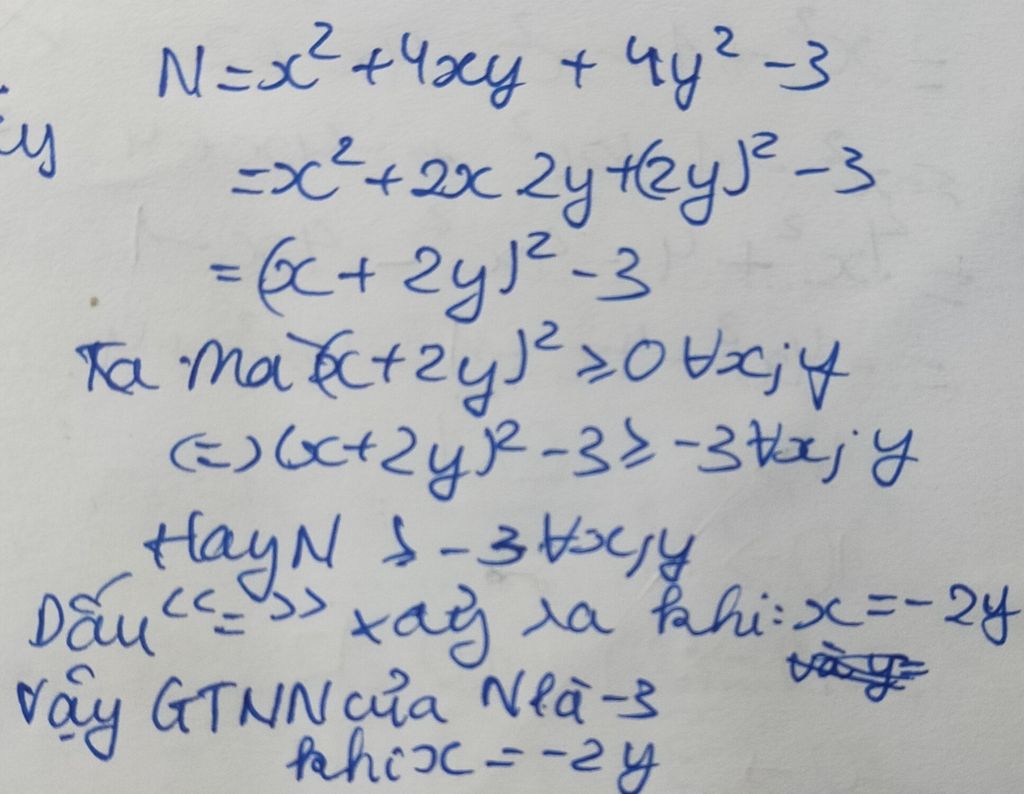 N = x² + 4xy + 4y² - 3
y
= x² + 2x 2y + (2y)² - 3
= (x + 2y)² - 3
Ta mà (x + 2y)² ≥ 0 ∀x; y
(=) (x + 2y)² - 3 ≥ -3 ∀x; y
Hay N ≥ -3 ∀x; y
Dấu << = >> xảy ra khi: x = -2y
Vậy GTNN của N là -3
khi x = -2y